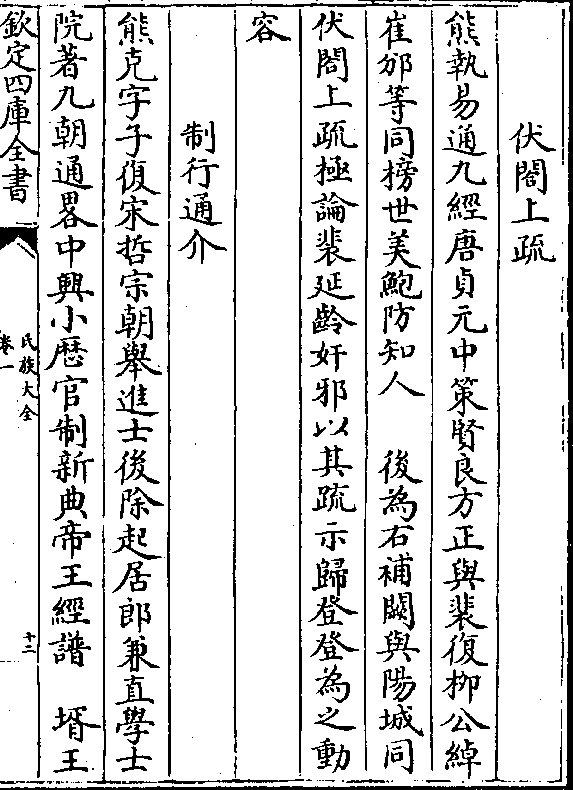 伏閤上疏
熊執易通九經唐貞元中策賢良方正與裴復栁公綽
崔邠等同榜世美鮑防知人　後為右補闕與陽城同
伏閤上疏極論裴延齡奸邪以其疏示歸登登為之動
容
制行通介
熊克字子復宋哲宗朝舉進士後除起居郎兼直學士
院著九朝通畧中興小厯官制新典帝王經譜　壻王
欽定四庫全書
氏族大全
卷一
十二